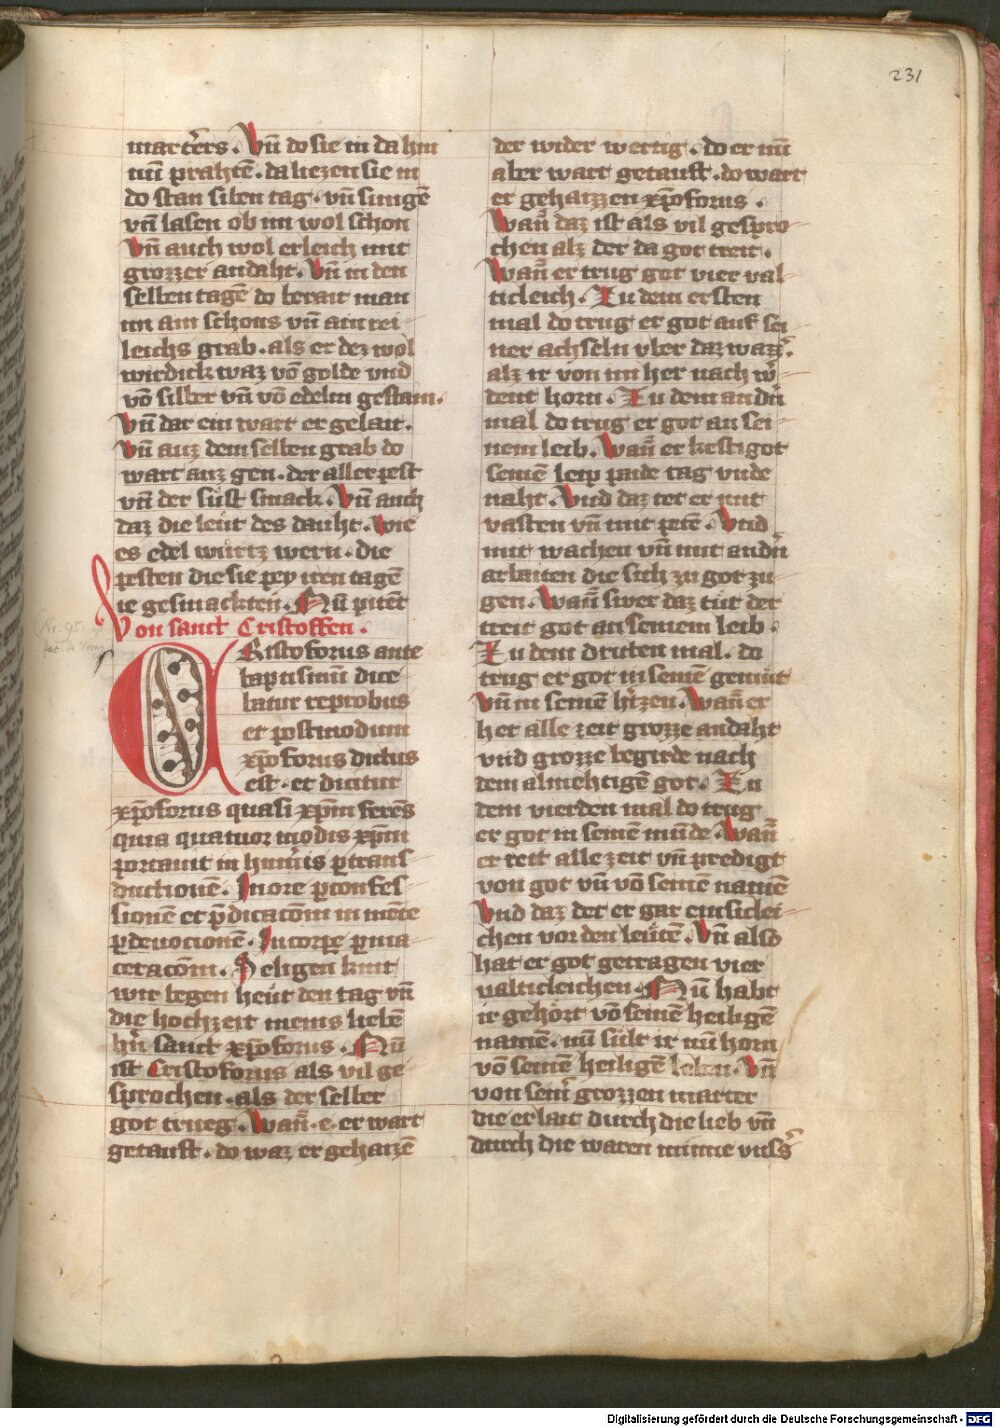 231
marterers . Vn̄ do sie in da hin
nun prahtē . da liezen sie in
do stan siben tag . vn̄ sungē
vn̄ lasen ob im wol schon
Vn̄ auch wol erleich mit
grozzer andaht . Vn̄ in den
selben tagē do berait man
im ain schons vn̄ ain rei
leichs grab . als er dez wol
wirdick waz vō golde vnd
vō silber vn̄ vō edelm gestain .
Vn̄ dar ein wart er gelait .
Vn̄ auz dem selben grab do
wart auz gen . der aller pest
vn̄ der süst smack . Vn̄ auch
daz die leüt des dauht . Wie
es edel würtz wern . die
pesten die sie pey iren tagē
ie gesmackten . Nū pitent
Von sanct Cristoffen .
CRistoforus ante
baptisimū dice
batur reprobus
et postmodum
xp̄oforus dictus
est . et dicitur
xp̄oforus quasi xp̄m ferēs
quia quatuor modis xp̄m
portauit in humis p trans
ductionē . Inore p confes
sionē et p̄dicacōm in mēte
p deuocionē . In corpe p ma
ceracōm . Seligen kint
wir begen heüt den tag vn̄
die hochzeit meins liebē
hr̄n sanct xp̄oforus . Nū
ist Cristoforus als vil ge
sprochen . als der selber
got trueg . Wann̄ . e . er wart
getauft . do waz er gehaizē
der wider wertig . do er nū
aber wart getauft . do wart
er gehaizzen xp̄oforus .
Wann̄ daz ist als vil gespro
chen alz der da got treit .
Wann̄ er trug got vier val
ticleich . Zu dem ersten
mal do trug er got auf sei
ner achseln vber daz wazz̄ .
alz ir von im her nach w̄
dent horn . Zu dem andn̄
mal do trug er got an sei
nem leib . Wann̄ er kestigot
seinē leip paide tag vnde
naht . Vnd daz tet er mit
vasten vn̄ mit petē . Vnd
mit wachen vn̄ mit andn̄
arbaiten die sich zu got zu
gen . Wann̄ swer daz tüt der
treit got an seinem leib .
Zu dem dritten mal . do
trug er got in seinē gemüt
Vn̄ in seinē h̄zen . Wann̄ er
het alle zeit grozze andaht
vnd grozze begirde nach
dem almehtigē got . Zu
dem vierden mal do trug
er got in seinē munde . Wann̄
er reit alle zeit vn̄ predigt
von got vn̄ vō seinē namē
Vnd daz det er gar emsiclei
chen vor den leütē . Vn̄ also
hat er got getragen vier
ualticleichen . Nū habt
ir gehört vō seinē heiligē
namē . nū sült ir nū horn
vō seinē heiligē leben . Vn̄
von sein̄ grozzen marter
die er lait durch die lieb vn̄
durch die waren minne vns̄s
Digitalisierung gefördert durch die Deutsche Forschungsgemeinschaft - DFG